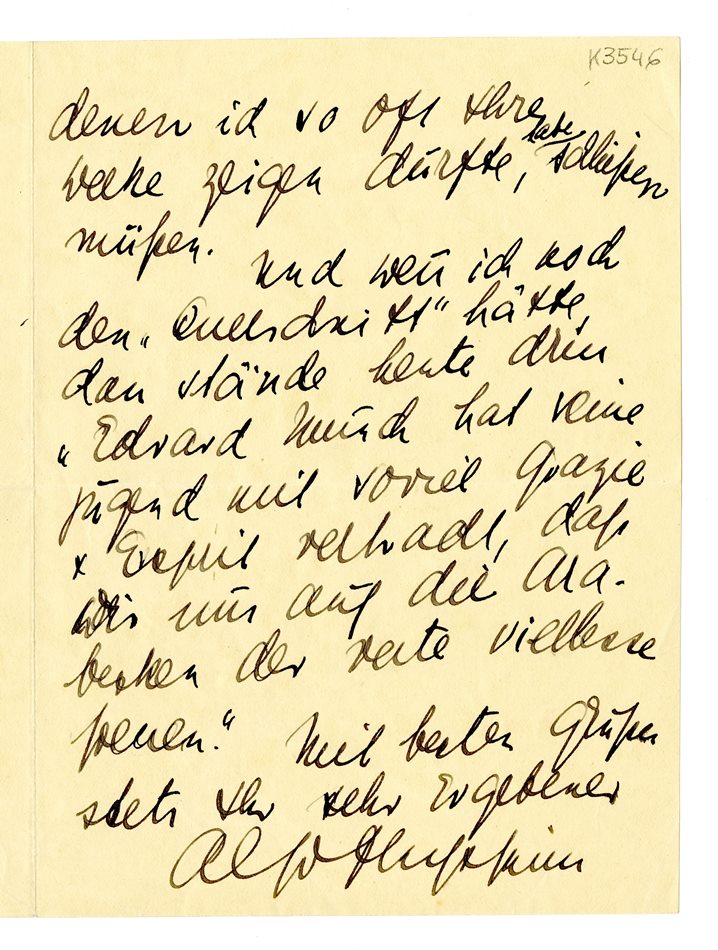 K3546
denen ich so oft Ihre
Werke zeigen durfte, habe schließen
müßen.
Und weñ ich noch
den „Querschnitt“ hätte,
dan stände heute drin
„Edvard Munch hat seine
Jugend mit soviel Grazie
+ Esprit verbracht, daß
wir uns auf die Ara-
besken der verte vieillesse
freuen.“ Mit besten Grüßen
stets Ihr sehr Ergebener
Alfr Flechtheim